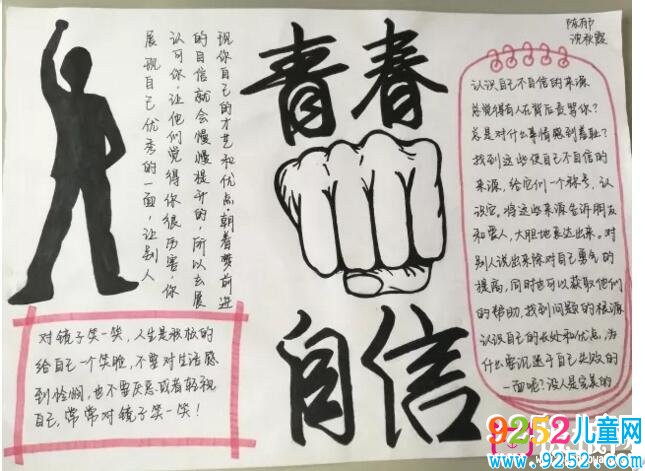 青春
自信
展现自己优秀的一面，让别人
认可你，让他们觉得你很厉害，你
的自信就会慢慢提升的，所以去展
现你自己的才艺和优点朝着梦前进
对镜子笑一笑，人生是轻松的
给自己一个笑脸，不要对生活感
到怜悯，也不要厌恶或者轻视
自己，常常对镜子笑一笑！
陈
认识自己不自信的来源
总觉得有人在背后骂你？
总是对什么事情感到羞耻？
找到这些使自己不自信的
来源，给它们一个称号，认
识它。将这些来源告诉朋友
和人，大胆地表达出来。对
别人说出来除对自己勇气的
提高，同时也可以获取他们
的帮助，找到问题的根源
认识自己的长处和优点，为
什么要沉迷于自己失败的
一面呢？没人是完美的
9252儿童网
www.9252.com